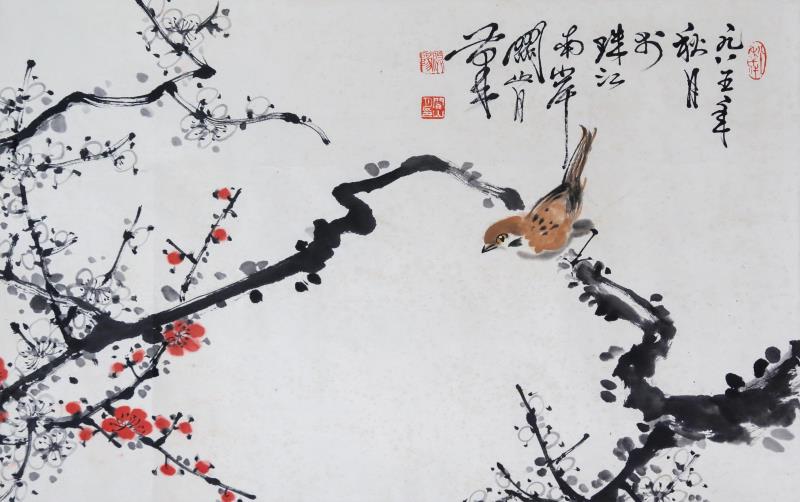 一九八五年
秋月
於
珠江
南岸
關山月
筆